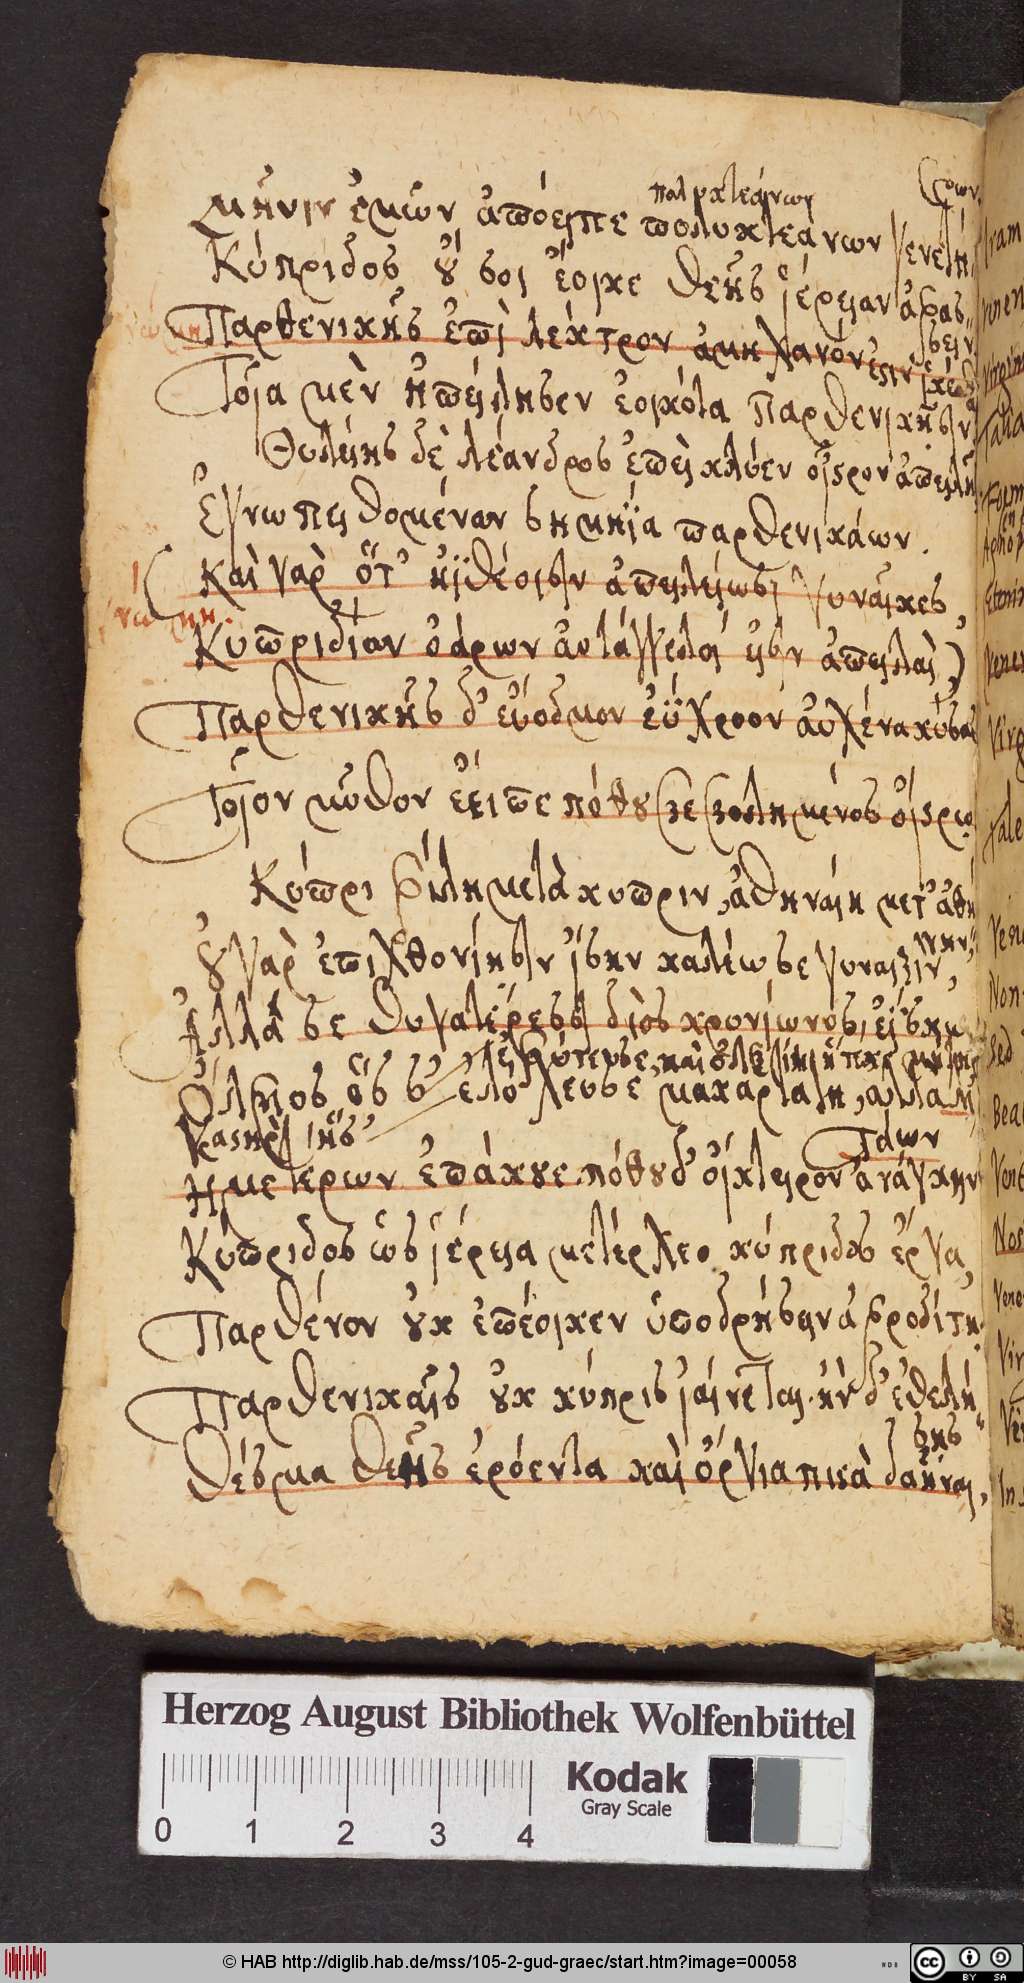 παμκτεάνων
Μῆνιν ἐμῶν ἀπόειπε πολυκτεάνων γενετή
ρων.
Κύπριδος οὔ σοι ἔοικε θεῆς ἱέρειαν ἀφάς
σειν.
Παρθενικῆς ἐπὶ λέκτρον ἀμήχανόν ἐστιν ἱκέσθαι
Τοῖα μὲν ἠπείλησεν ἐοικότα παρθενικῇσιν
Θηλείης δὲ λέανδρος ἐπεὶ κλύεν οἶστρον ἀπειλῆς
ἔγνω πειθομένων σημήϊα παρθενικάων.
Καὶ γὰρ ὅτ' ἠϊθέοισιν ἀπειλείωσι γυναῖκες,
γνώμη.
Κυπριδίων ὀάρων αὐτάγγελοί εἰσιν ἀπειλαί)
Παρθενικῆς δ' εὔοδμον ἐΰχροον αὐχένα κύσας
Τοῖον μῦθον ἔειπε πόθου βεβολημένος οἴστρῳ.
Κύπρι φίλη μετὰ κυπριν, ἀθηναίη μετ' ἀθή
νην,
οὐ γὰρ ἐπιχθονίῃσιν ἴσην καλέω σε γυναιξίν,
Ἀλλά σε θυγατέρεσσι διὸς κρονίωνος ἐΐσκω
Ὄλβιος ὅς σ' ἐφύτευσε, καὶ ὀλβίη ἣ τέκε μήτηρ
ἐλο χευσε μακαρτάτη, ἀλλὰ λι
Γαστήρ, ἥ σ'
τάων
Ημετέρων ἐπάκουε πόθου δ' οἴκτειρον ἀνάγκην
Κύπριδος ὡς ἱέρεια μετέρχεο κύπριδος ἔργα,
Παρθένον οὐκ ἐπέοικεν ὑποδρήσσειν ἀφροδίτῃ.
Παρθενικαῖς οὐκ κύπρις ἰαίνεται. ἢν δ' ἐθελή
σῃς
Θέσμα θεῆς ἐρόεντα καὶ ὄργια πιστὰ δαῆναι,
Iram
Virg
Tale
Non
Sed
Nos
Vene
In
Herzog August Bibliothek Wolfenbüttel
Kodak
Gray Scale
0 1 2 3 4
© HAB http://diglib.hab.de/mss/105-2-gud-graec/start.htm?image=00058
cc BY SA